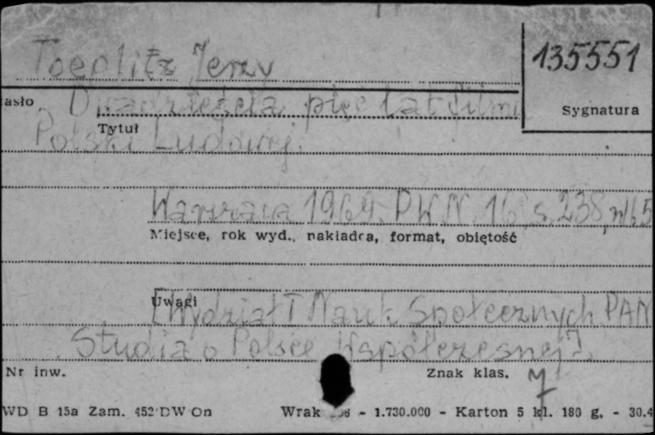 Toeplitz Jerzy
135551
asło
Dwadzieścia pięć lat filmu
Tytuł
Sygnatura
Polski Ludowej.
Warszawa 1969. PWN. 16°, s. 238,
Miejsce, rok wyd., nakładca, format, objętość
Uwagi
[Wydział I Nauk Społecznych PAN
Studia o Polsce Współczesnej].
Nr inw.
Znak klas. 7
WD B 15a Zam. 452 DW On
Wrak - 1.730.000 - Karton 5 kl. 180 g. - 30.4